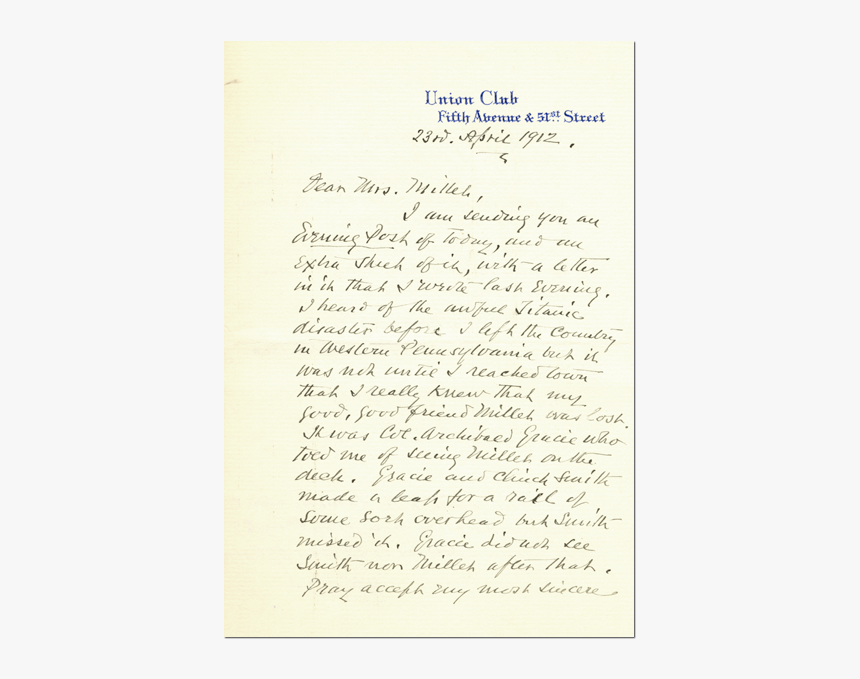 Union Club
Fifth Avenue & 51st Street
23rd. April 1912.
Dear Mrs. Millet,
I am sending you an
Evening Post of today, and an
extra sheet of it, with a letter
in it that I wrote last Evening.
I heard of the awful Titanic
disaster before I left the Country
in Western Pennsylvania but it
was not until I reached town
that I really knew that my
good, good friend Millet was lost.
It was Col. Archibald Gracie who
told me of seeing Millet on the
deck. Gracie and Clinch Smith
made a leap for a rail of
some sort overhead but Smith
missed it. Gracie did not see
Smith nor Millet after that.
Pray accept my most sincere